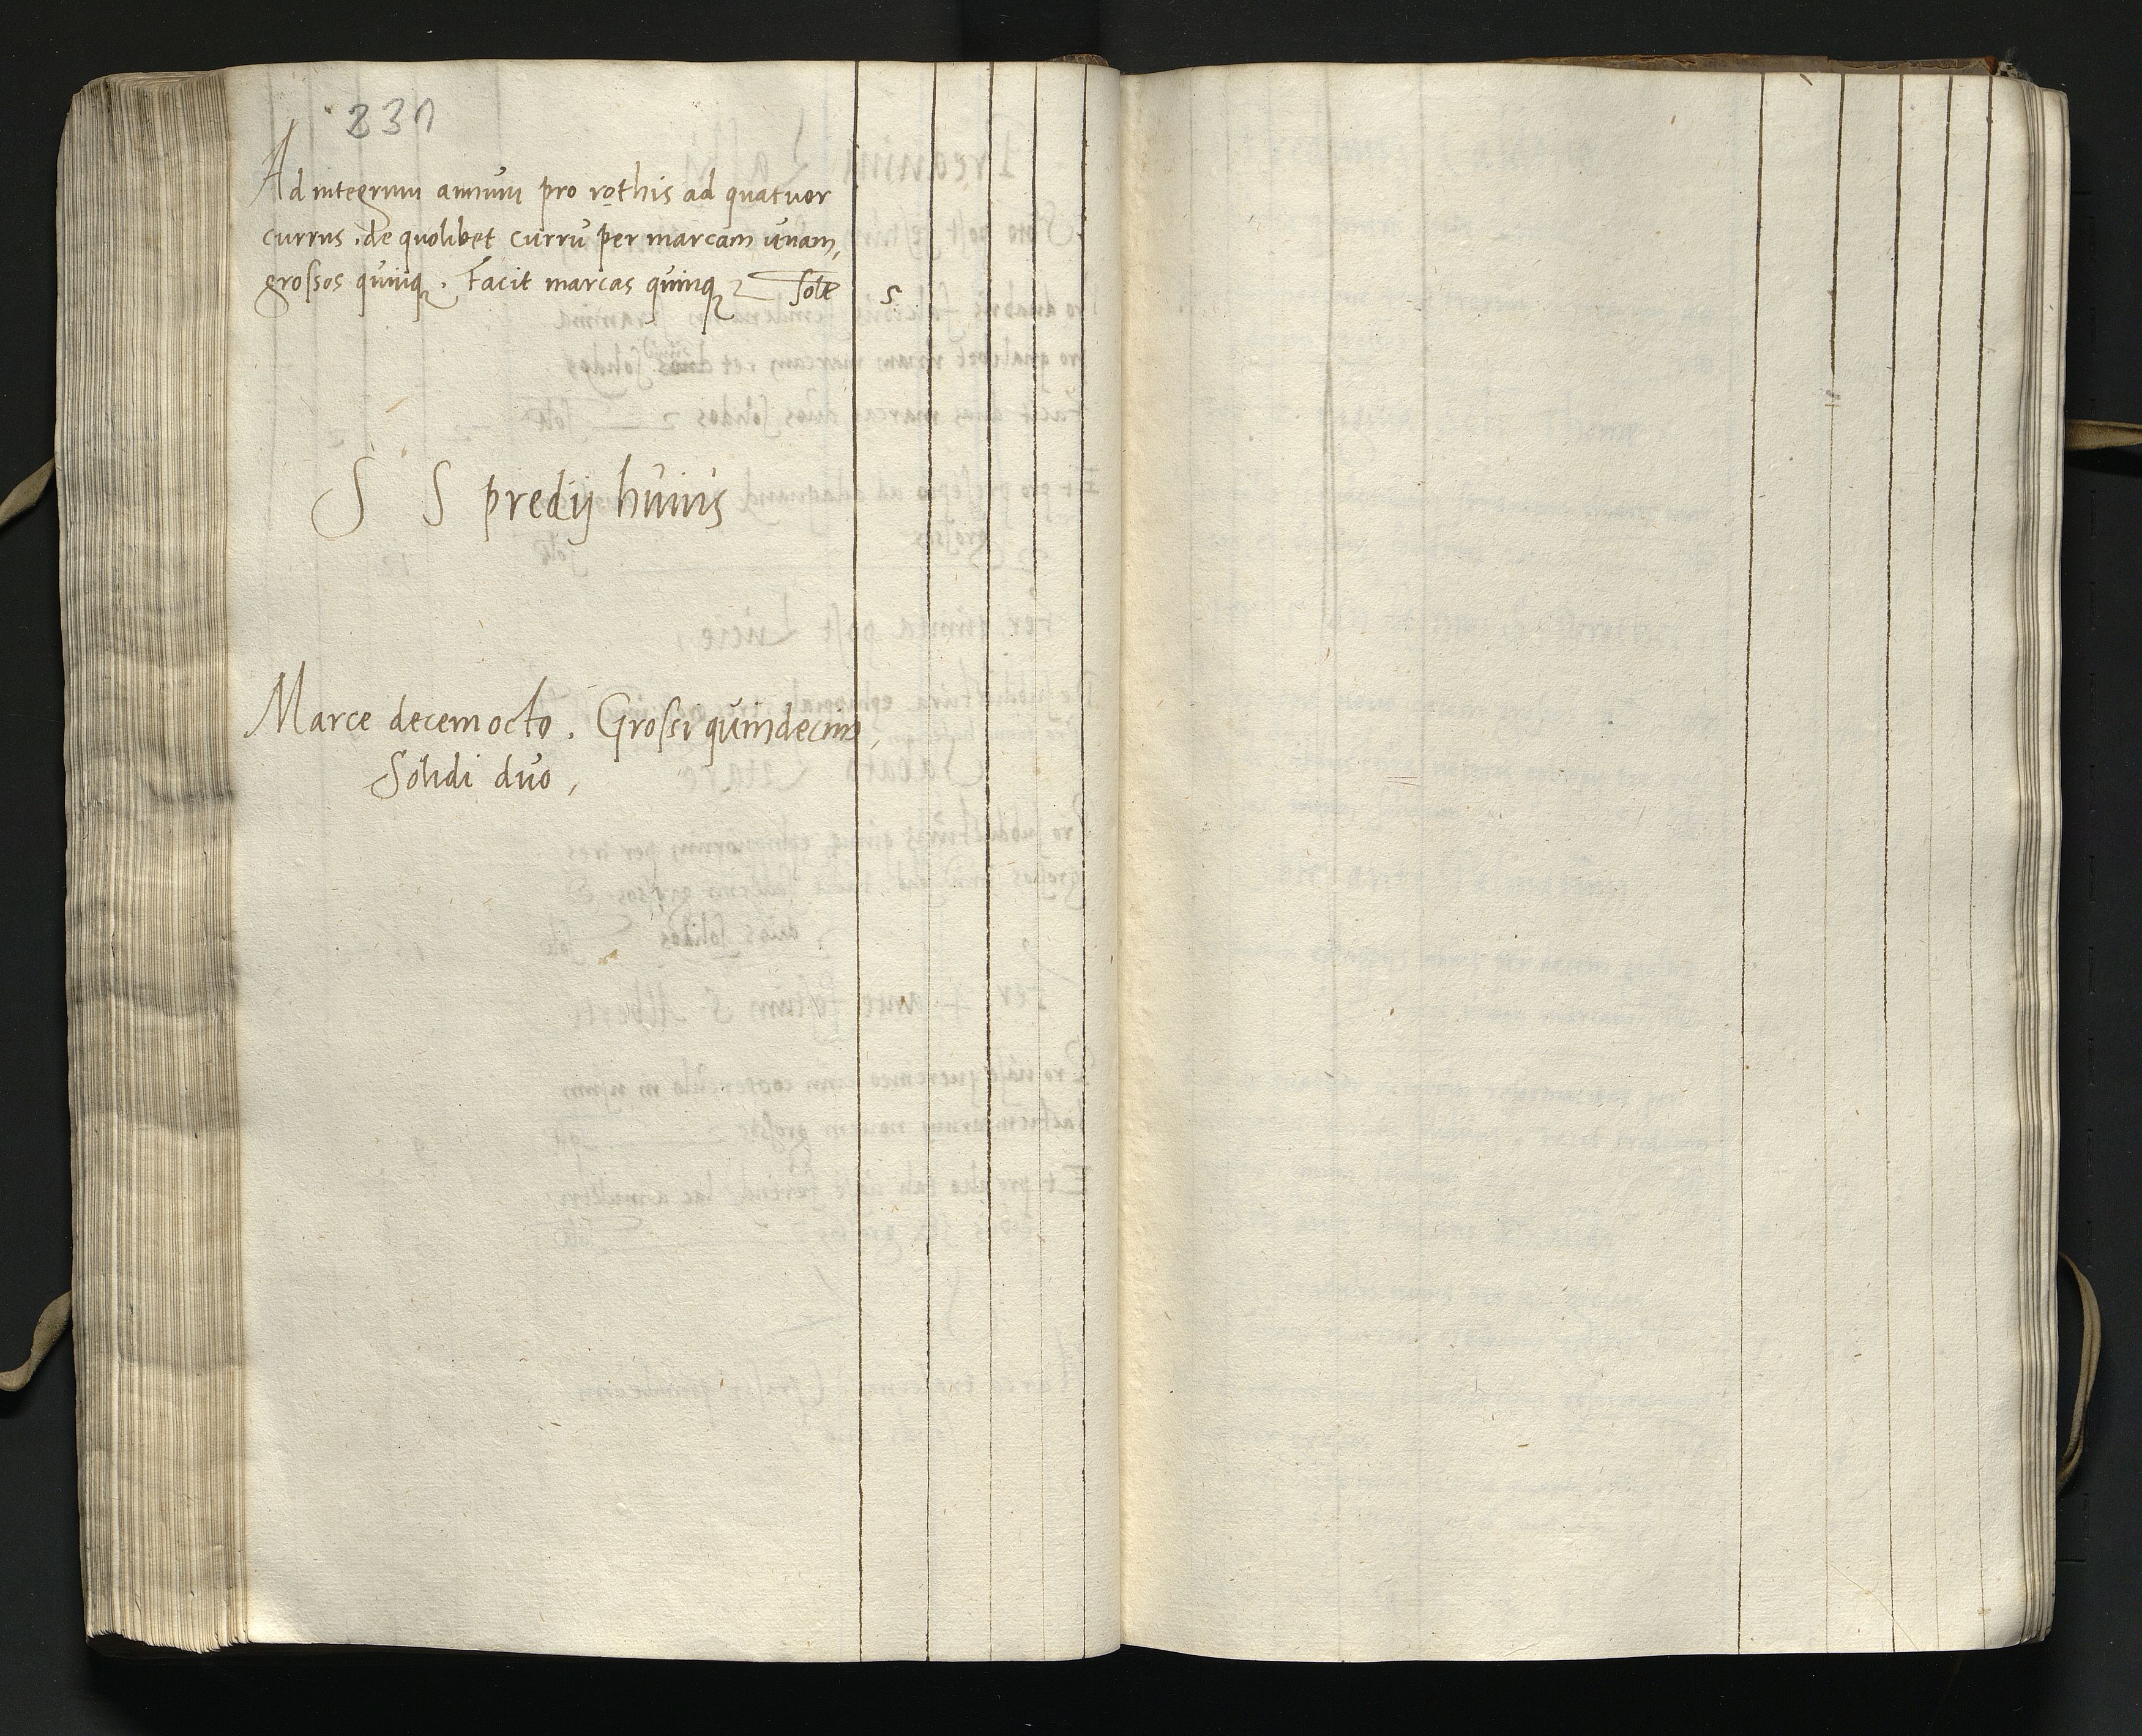 231
Ad integrum annum pro rothis ad quatuor
currus . de quolibet curru per marcam unam,
grossos quinq . Facit marcas quinq solt 5
S S predij huius
Marce decemocto . Grossi quindecim,
Solidi duo ,